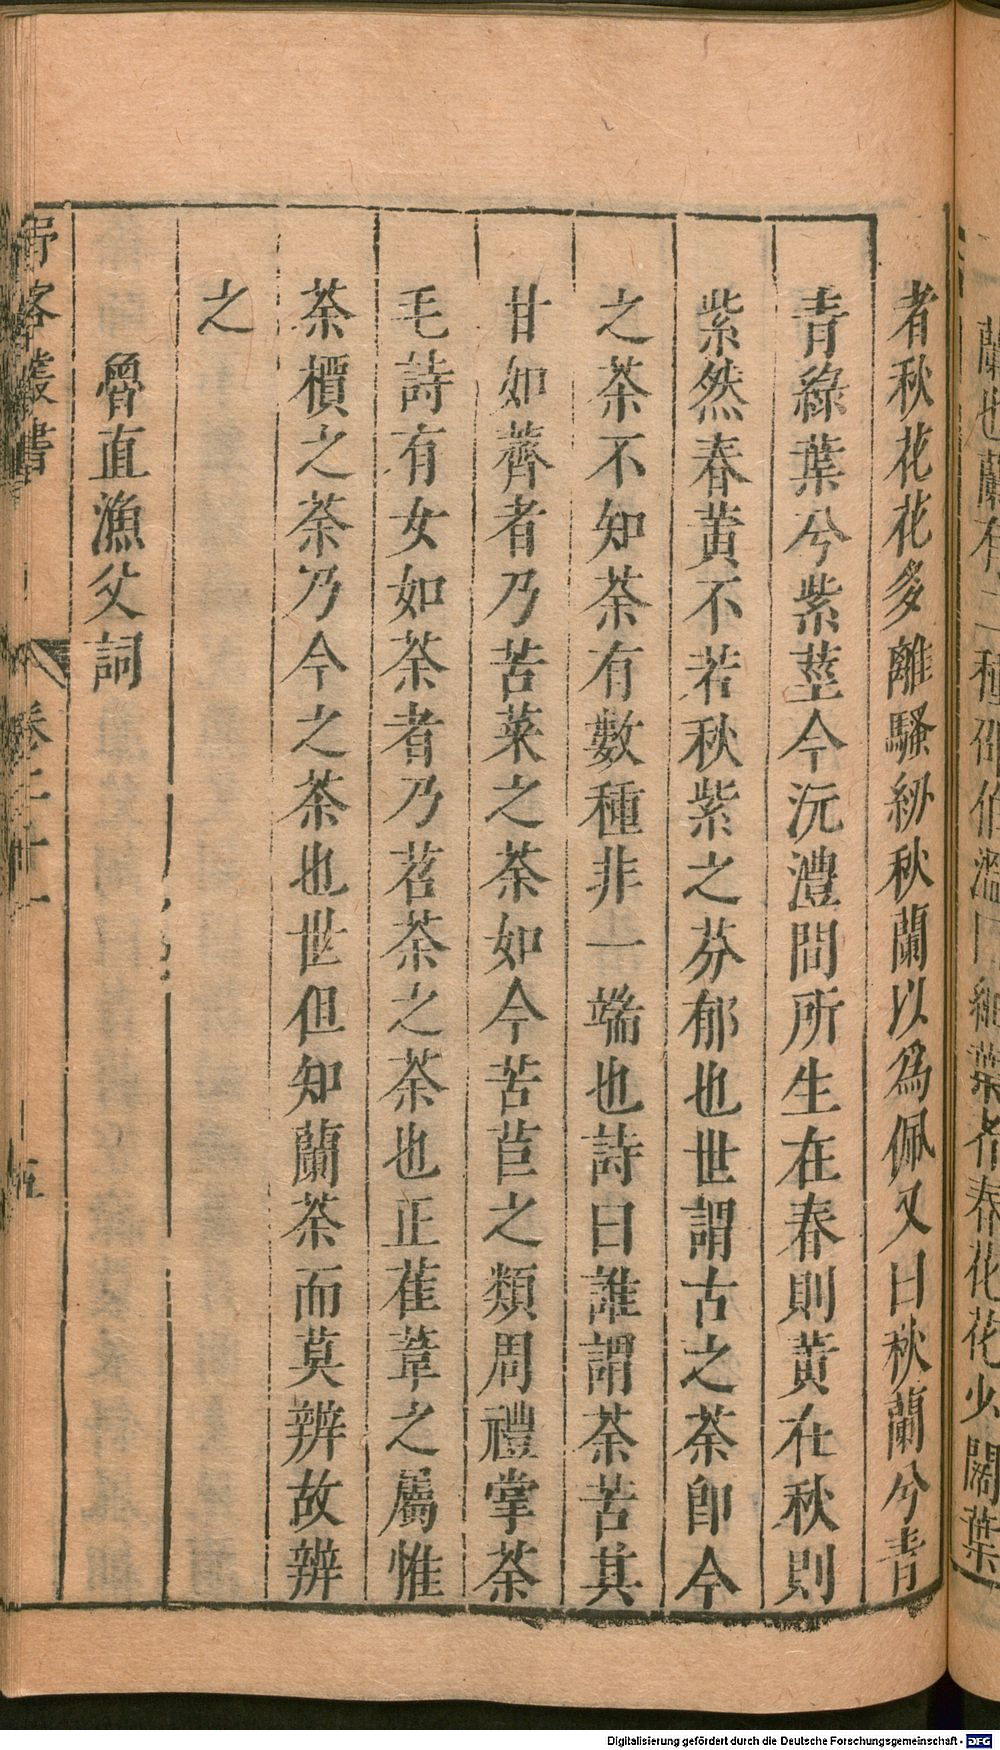 蘭也蘭有二種細葉者春花花少闊葉
者秋花花多離騷紉秋蘭以爲佩又曰秋蘭兮青
青綠葉兮紫莖今沅澧間所生在春則黃在秋則
紫然春黃不若秋紫之芬郁也世謂古之荼卽今
之茶不知荼有數種非一端也詩曰誰謂荼苦其
甘如薺者乃苦菜之荼如今苦苣之類周禮掌荼
毛詩有女如荼者乃苕荼之荼也正萑葦之屬惟
荼檟之荼乃今之茶也世但知蘭荼而莫辨故辨
之
魯直漁父詞
客叢書
卷二十
五
Digitalisierung gefördert durch die Deutsche Forschungsgemeinschaft - DFG